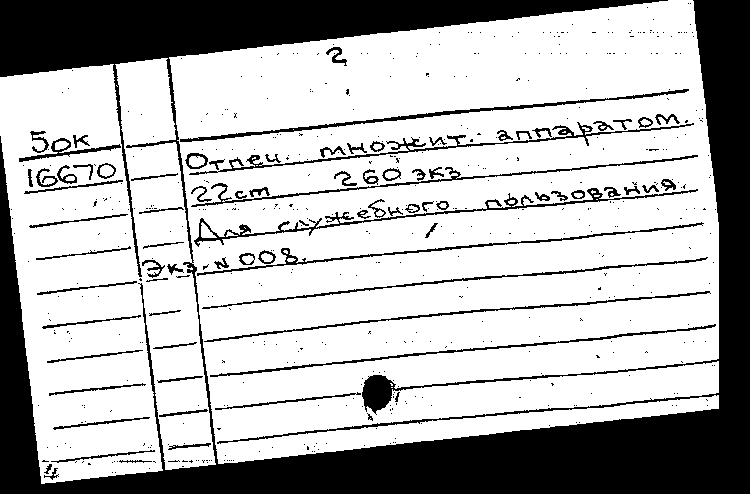 2
5ок
16670 Отпеч. множит. аппаратом.
22ст 260 экз
Для служебного пользования.
Экз. N 008.
4